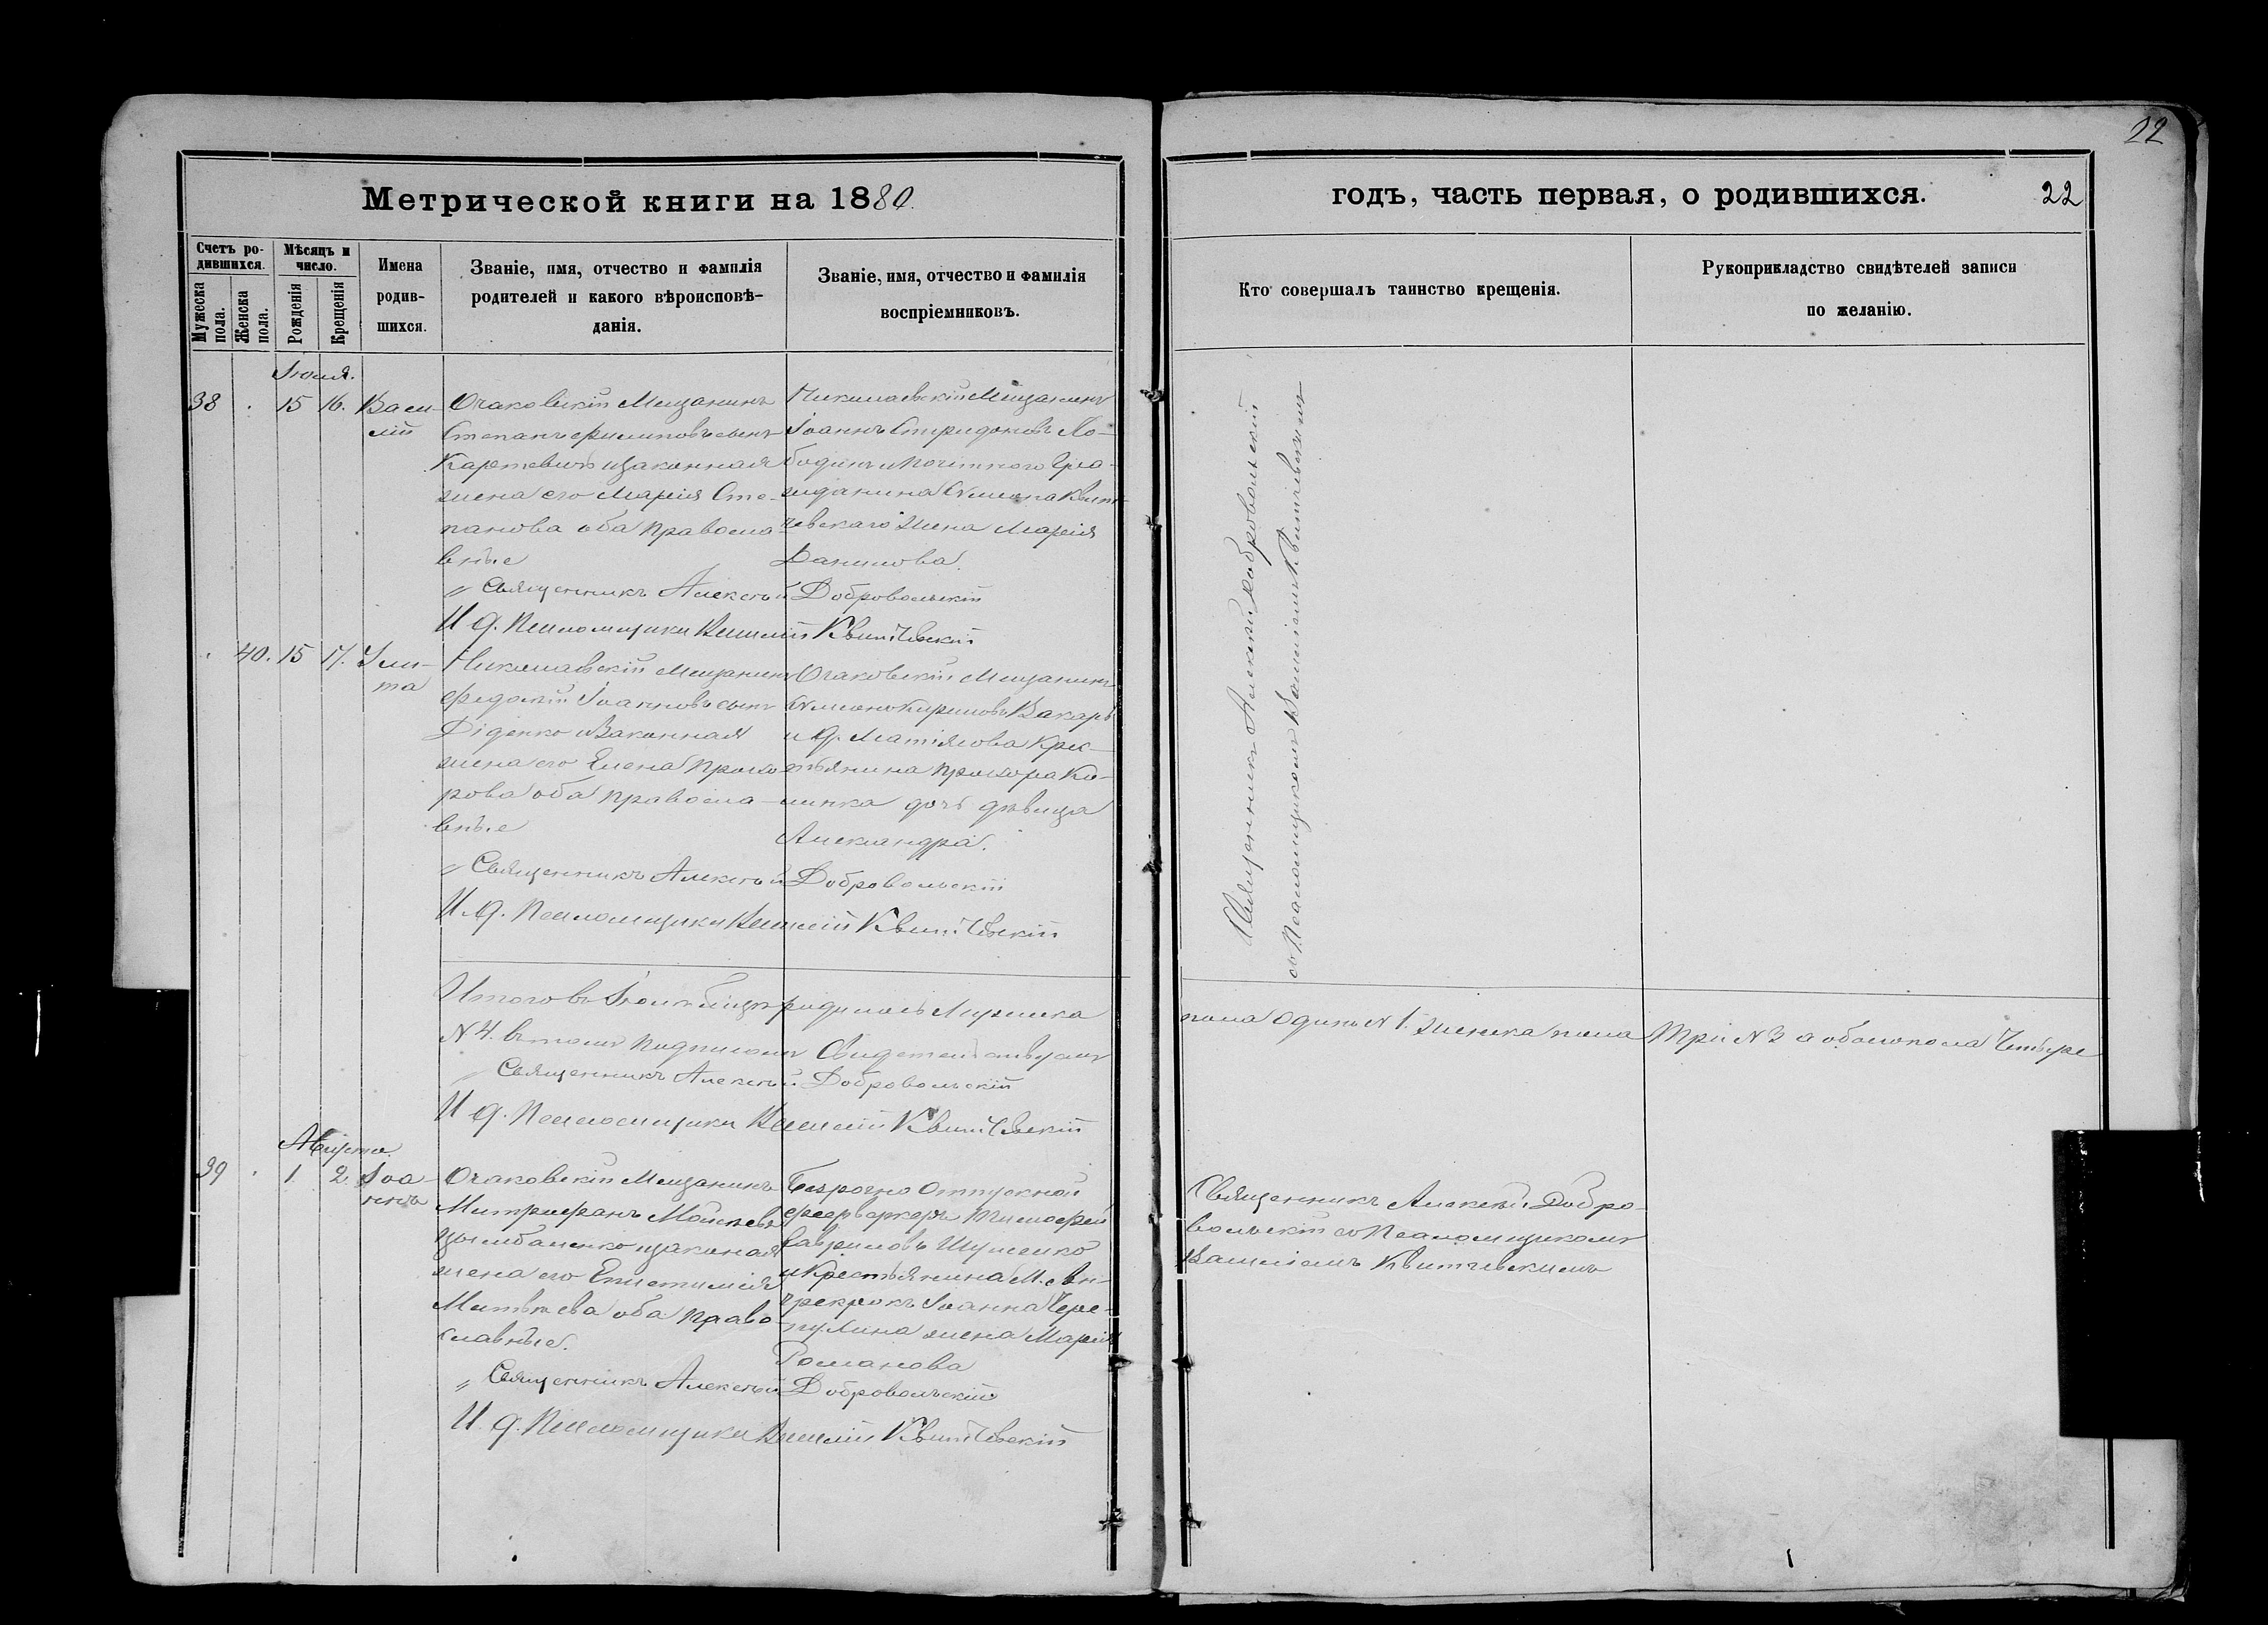 22
Метрической книги на 1880.
годъ, часть первая, о родившихся.
22
Счетъ ро-
дившихся.
Мужеска пола.
Женска пола.
Мѣсяцъ и
число.
Рожденія
Крещенія
Имена
родив-
шихся.
Званіе, имя, отчество и фамилія
родителей и какого вѣроисповѣ-
данія.
Званіе, имя, отчество и фамилія
воспріемниковъ.
Кто совершалъ таинство крещенія.
Рукоприкладство свидѣтелей записи
по желанію.
Іюля.
38
15
16.
Васи-
лій
Очаковскій Мещанинъ
Степанъ Филиповъ сынъ
Карпевичъ и законная
жена его Марія Сте-
панова оба Правосла-
вные
Николаевскій Мещанинъ
Іоаннъ Спиридоновъ Ло-
бодинъ и Почетнаго Гра-
жданина Симеона Квит-
чевскаго жена Марія
Данилова.
Священникъ Алексѣй Добровольскій
И. д. Псаломщика Василій Квитчевскій
40.
15
17.
Ули-
та
Николаевскій Мещанинъ
Федосій Іоанновъ сынъ
Діденко и Законная
жена его Елена Прохо-
рова оба Правосла-
вные
Очаковскій Мещанинъ
Симеонъ Кириловъ Вакаръ
и д. Матіясова Крес-
тьянина Прохора Ка-
линка дочь дѣвица
Александра.
Священникъ Алексѣй Добровольскій
И. д. Псаломщика Василій Квитчевскій
Священникъ Алексѣй Добровольскій
съ Псаломщикомъ Василіемъ Квитчевскимъ
Итого въ Іюлѣ м-цѣ родилось Мужеска
пола Одинъ N 1. женска пола Три N 3 а обоего пола Четыре
N 4. въ томъ Подписомъ Свидетельствуемъ
Священникъ Алексѣй Добровольскій
И. д. Псаломщика Василій Квитчевскій
Августа.
39
1.
2.
Іоа-
ннъ
Очаковскій Мещанинъ
Митрофанъ Моисеевъ
Цымбаленко и законная
жена его Епистимія
Матвѣева оба Право-
славные.
Безрочно Отпускной
феерверкеръ Тимофей
Гавриловъ Шуленко
и Крестьянина М. Вн-
Іоанна Чере-
жена Марія
Романова
Священникъ Алексѣй Добро-
вольскій съ Псаломщикомъ
Василіемъ Квитчевскимъ
Священникъ Алексѣй Добровольскій
И. д. Псаломщика Василій Квитчевскій